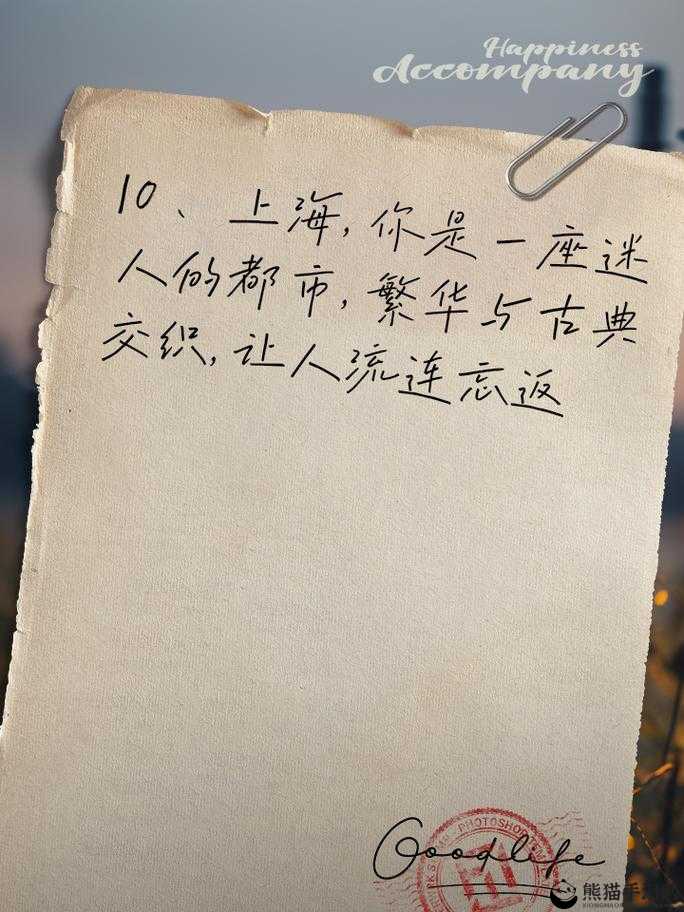 Happiness
Accompany
10、上海,你是一座迷
人的都市,繁华与古典
交织,让人流连忘返
PHOTOSHOP
Goodlife
熊猫手